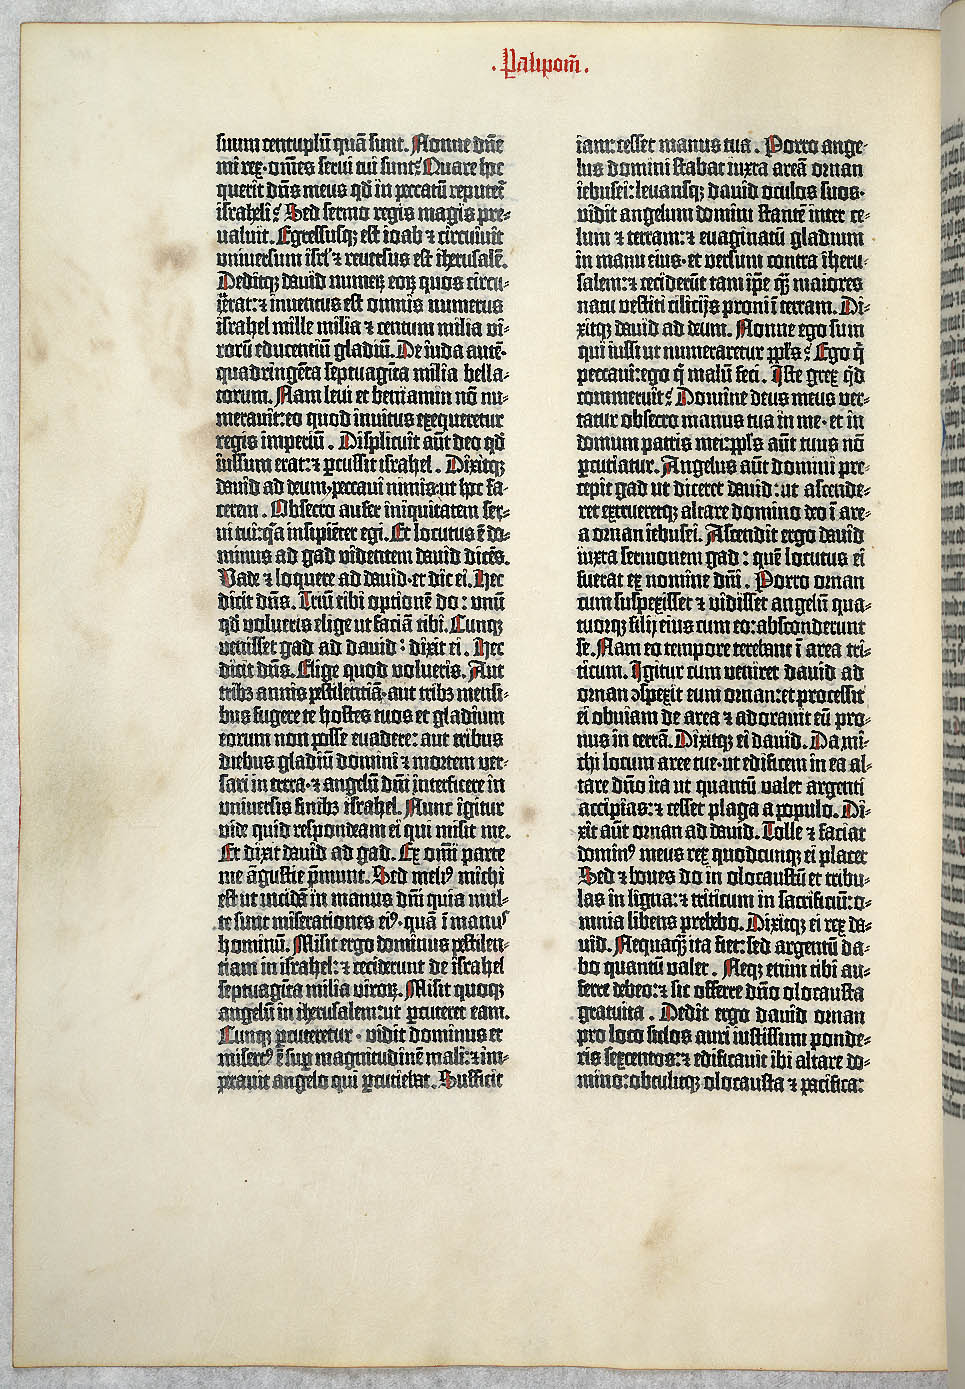 .Palipom̄.
suum centuplū quā sunt. Nonne dn̄e
mi rex·om̄es servi tui sunt? Quare hoc
querit dn̄s meus qd̄ in peccatū reputet᷑
israheli? Sed sermo regis magis pre-
valuit. Egressusq; est ioab ⁊ circuivit
universum isrl̄ ⁊ reversus est iherusalē.
Deditq; david numeꝝ eoꝝ quos circu-
ierat:⁊ inventus est omnis numerus
israhel mille milia ⁊ centum milia vi-
rorū educentiū gladiū. De iuda autē·
quadringēta septuagīta milia bella-
torum. Nam levi et beniamin nō nu-
meravit:eo quod invitus exequeretur
regis imperiū. Displicuit aūt deo qd̄
iussum erat:⁊ ꝑcussit israhel. Dixitq;
david ad deum,peccavi nimis·ut hoc fa-
cerem. Obsecro aufer iniquitatem ser-
vi tui:q̄a insipiēter egi. Et locutus ē do-
minus ad gad videntem david dicēs.
Vade ⁊ loquere ad david·et dic ei. Hec
dicit dn̄s. Triū tibi optionē do: unū
qd̄ volueris elige ut faciā tibi. Cumq;
venisset gad ad david: dixit ei. Hec
dicit dn̄s. Elige quod volueris. Aut
trib; annis pestilentiā·aut trib; mensi-
bus fugere te hostes tuos et gladium
eorum non posse evadere: aut tribus
diebus gladiū domini ⁊ mortem ver-
sari in terra·⁊ angelū dn̄i interficere in
universis finib; israhel. Nunc igitur
vide quid respondeam ei qui misit me.
Et dixit david ad gad. Ex om̄i parte
me āgustie p̄munt. Sed meli⁹ michi
est ut incidā in manus dn̄i quia mul-
te sunt miserationes ei⁹·quā ī manus
hominū. Misit ergo dominus pestilen-
tiam in israhel:⁊ ceciderunt de israhel
septuagīta milia viroꝝ. Misit quoq;
angelū in iherusalem:ut ꝑcuteret eam.
Cumq; ꝑcuteretur·vidit dominus et
misert⁹ ē suꝑ magnitudinē mali:⁊ im-
peravit angelo qui ꝑcutiebat. Sufficit
iam:cesset manus tua. Porro ange-
lus domini stabat iuxta areā ornan
iebusei:levansq; david oculos suos·
vidit angelum domini stantē inter ce-
lum ⁊ terram:⁊ evaginatū gladium
in manu eius·et versum contra iheru-
salem:⁊ ceciderūt tam ip̄e q̄ maiores
natu vestiti cilicijs proni ī terram. Di-
xitq; david ad deum. Nonne ego sum
qui iussi ut numeraretur ppl̄s? Ego q̄
peccavi:ego q̄ malū feci. Iste grex qd̄
commeruit? Domine deus meus ver-
tatur obsecro manus tua in me·et in
domum patris mei:ppl̄s aūt tuus nō
ꝑcutiatur. Angelus aūt domini pre-
cepit gad ut diceret david:ut ascende-
ret extrueretq; altare domino deo ī are-
a ornan iebusei. Ascendit ergo david
iuxta sermonem gad: quē locutus ei
fuerat ex nomine dn̄i. Porro ornan
cum suspexisset ⁊ vidisset angelū qua-
tuorq; filij eius cum eo:absconderunt
se. Nam eo tempore terebant ī area tri-
ticum. Igitur cum veniret david ad
ornan ꝯspexit eum ornan:et processit
ei obviam de area ⁊ adoravit eū pro-
nus in terrā. Dixitq; ei david. Da mi-
chi locum aree tue·ut edificem in ea al-
tare dn̄o ita ut quantū valet argenti
accipias:⁊ cesset plaga a populo. Di-
xit aūt ornan ad david. Tolle ⁊ faciat
domin⁹ meus rex quodcunq; ei placet
Sed ⁊ boves do in olocaustū et tribu-
las in ligna:⁊ triticum in sacrificiū:o-
mnia libens prebebo. Dixitq; ei rex da-
vid. Nequaq̄ ita fiet:sed argentū da-
bo quantū valet. Neq; enim tibi au-
ferre debeo:⁊ sic offerre dn̄o olocausta
gratuita. Dedit ergo david ornan
pro loco siclos auri iustissimi ponde-
ris sexcentos:⁊ edificavit ibi altare do-
mino:obtulitq; olocausta ⁊ pacifica: